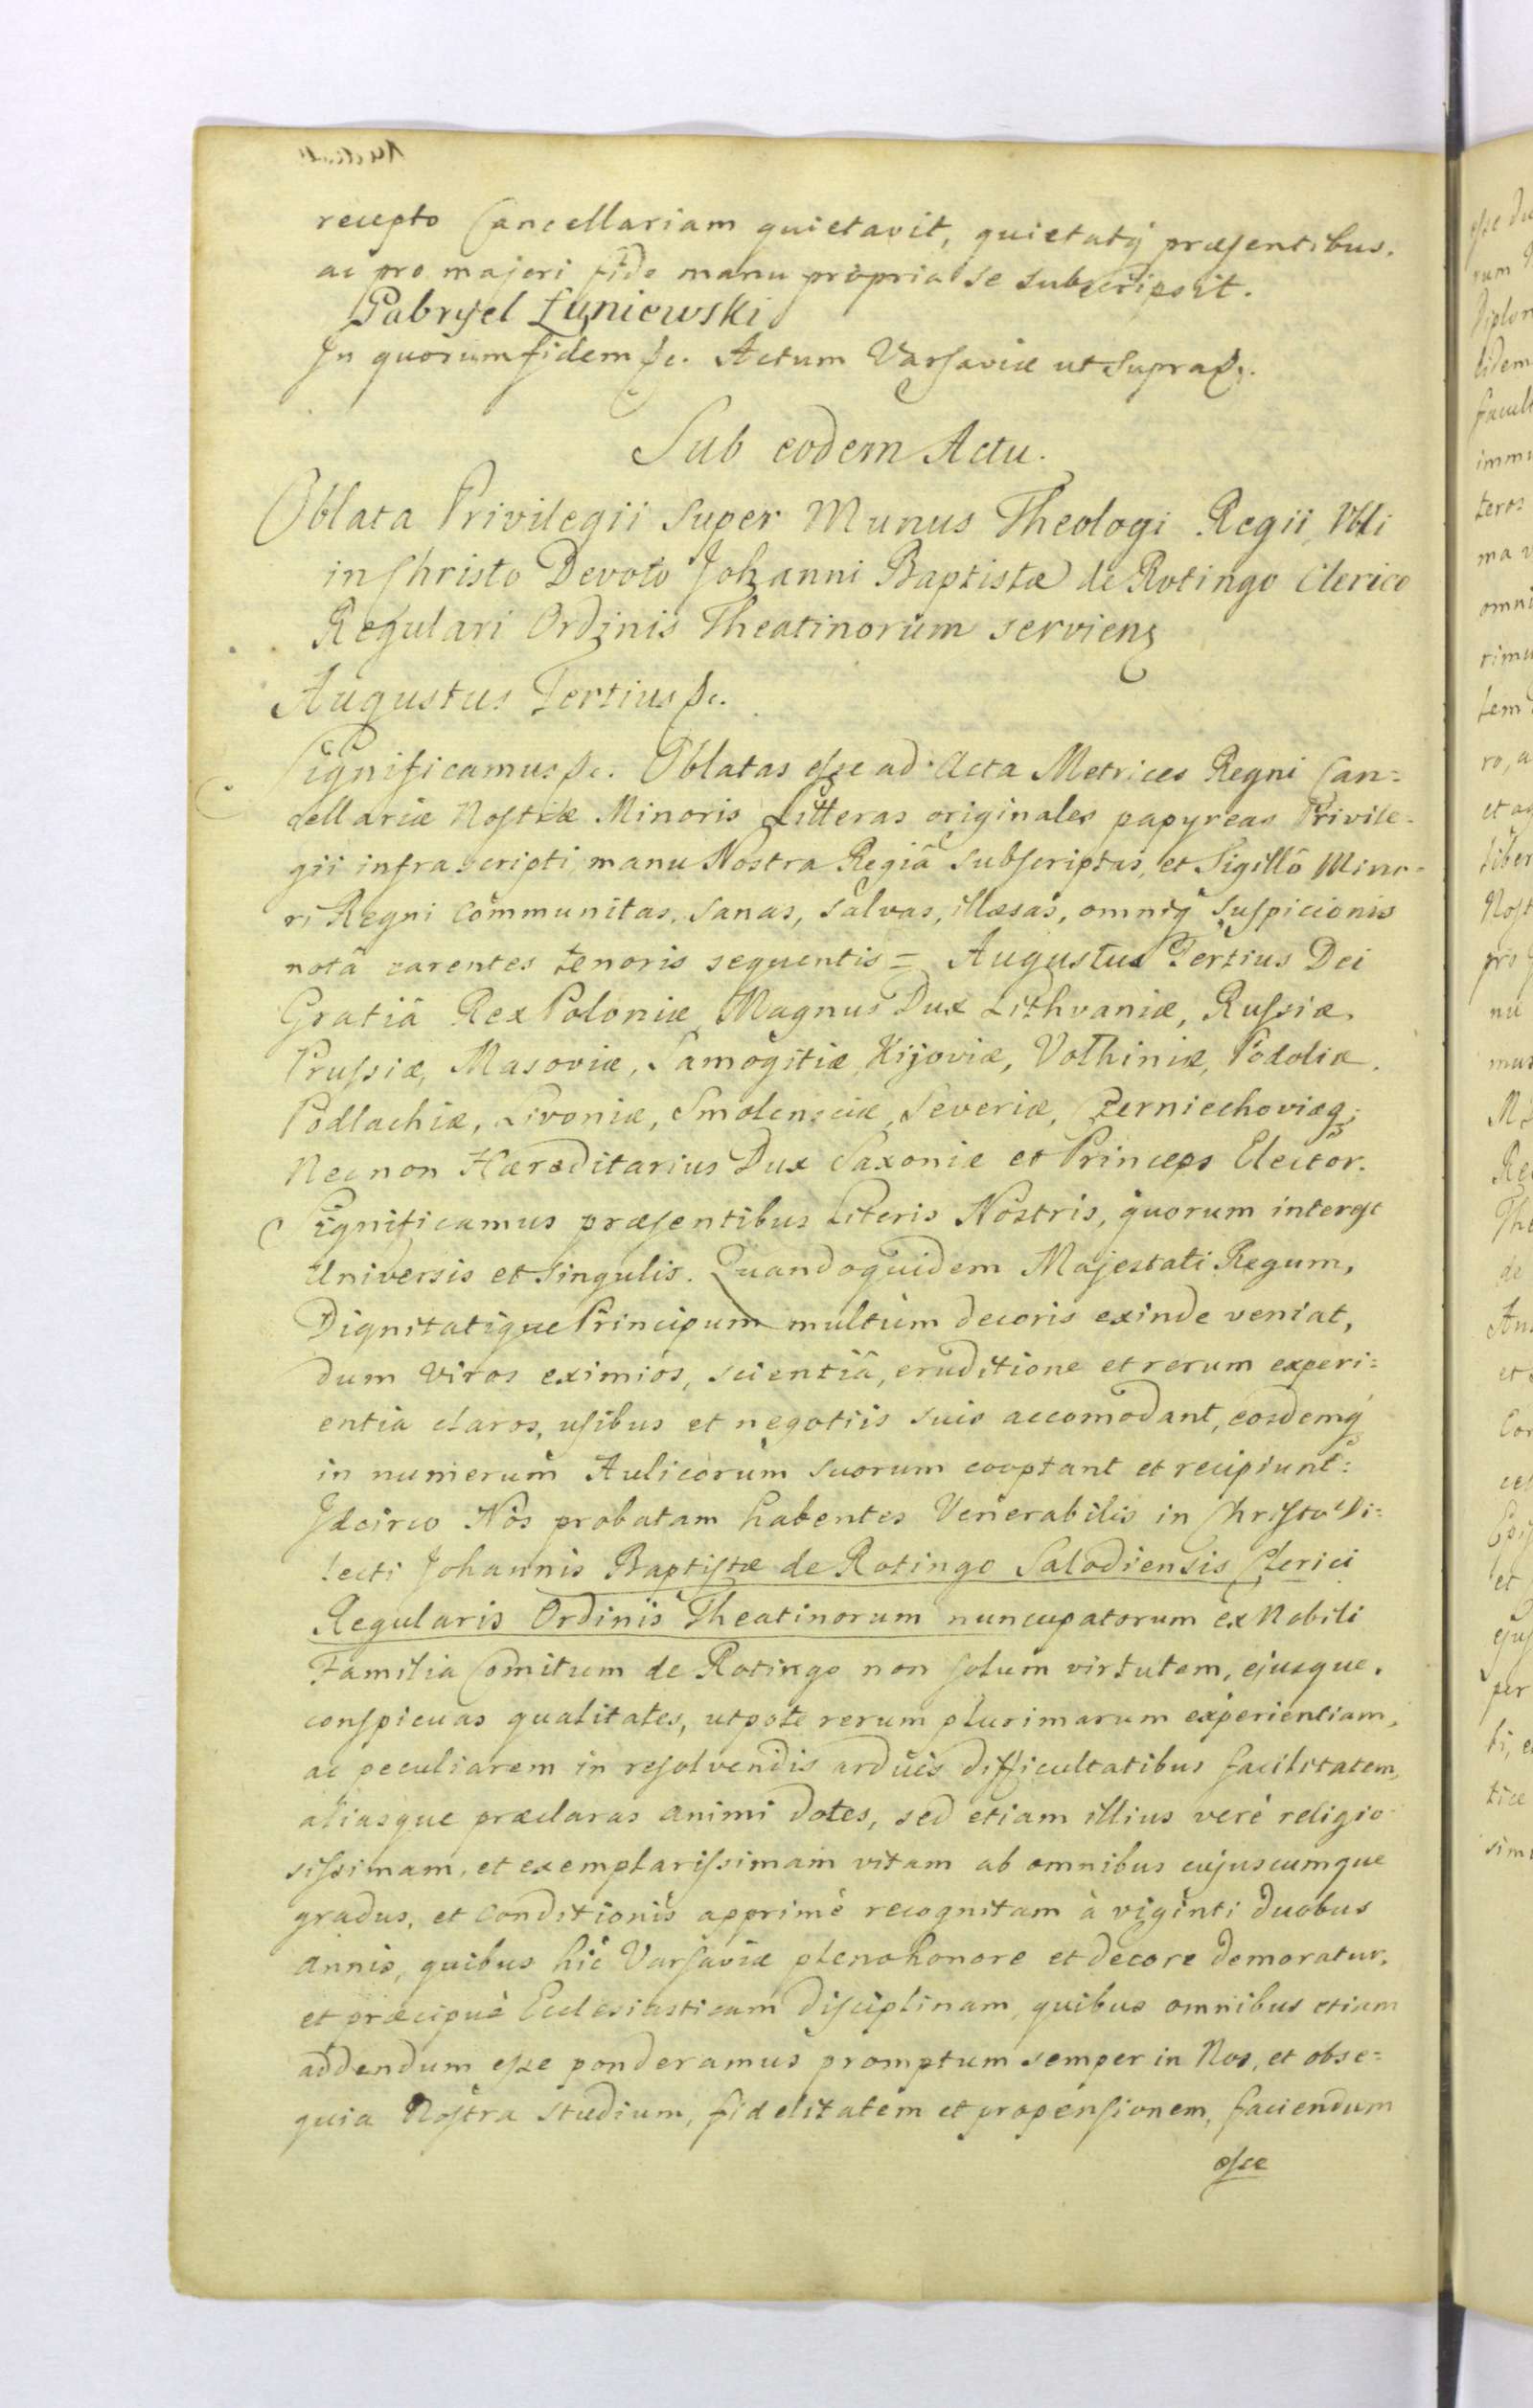 recepto Cancellariam quietavit, quietatq́ præsentibus.
ac pro majori fide manu propria se subscripsit.
Gabryel Łuniewski
In quorum fidem &c. Actum Varsaviæ ut Supra &c.
Sub eodem Actu.
Oblata Privilegii super Munus Theologi Regii, Vbli
in Christo Devoto Johanni Baptistæ de Rotingo Clerico
Regulari Ordinis Theatinorum serviens
Augustus Tertius &c.
Significamus &c. Oblatas esse ad Acta Metrices Regni Can=
cellariæ Nostræ Minoris Litteras originales papyreas Privile=
gii infrascripti, manu Nostra Regiâ Subscriptas, et Sigillô Mino=
ri Regni communitas, sanas, salvas, illæsas, omniq́ suspicionis
notâ carentes tenoris sequentis = Augustus Tertius Dei
Gratiâ Rex Poloniæ, Magnus Dux Lithvaniæ, Russiæ,
Prussiæ, Masoviæ, Samogitiæ, Kijoviæ, Volhiniæ, Podoliæ,
Podlachiæ, Livoniæ, Smolensciæ, Severiæ, Czerniechoviæq;
Necnon Hæreditarius Dux Saxoniæ et Princeps Elector.
Significamus præsentibus Literis Nostris, quorum interest
Universis et singulis. Quandoquidem Majestati Regum,
Dignitatique Principum multum decoris exinde veniat,
dum Viros eximios, scientiâ, eruditione et rerum experi=
entia claros, usibus et negotiis suis accomodant, eosdemq́
in numerum Aulicorum suorum cooptant et recipiunt:
Idcirco Nos probatam habentes Venerabilis in Christo Di=
lecti Johannis Baptistæ de Rotingo Salodiensis Clerici
Regularis Ordinis Theatinorum nuncupatorum ex Nobili
Familia Comitum de Rotingo non solum virtutem, ejusque,
conspicuas qualitates, utpote rerum plurimarum experientiam,
ac peculiarem in resolvendis arduis difficultatibus facilitatem,
aliasque præclaras animi dotes, sed etiam illius verè religio
sissimam, et exemplarissimam vitam ab omnibus cujuscumque
gradus, et conditionis apprimè recognitam à viginti duobus
annis, quibus hic Varsaviæ pleno honore et decore demoratur,
et præcipuè Ecclesiasticam disciplinam, quibus omnibus etiam
addendum esse ponderamus promptum semper in Nos, et obse=
quia Nostra studium, fidelitatem et propensionem, faciendum
esse